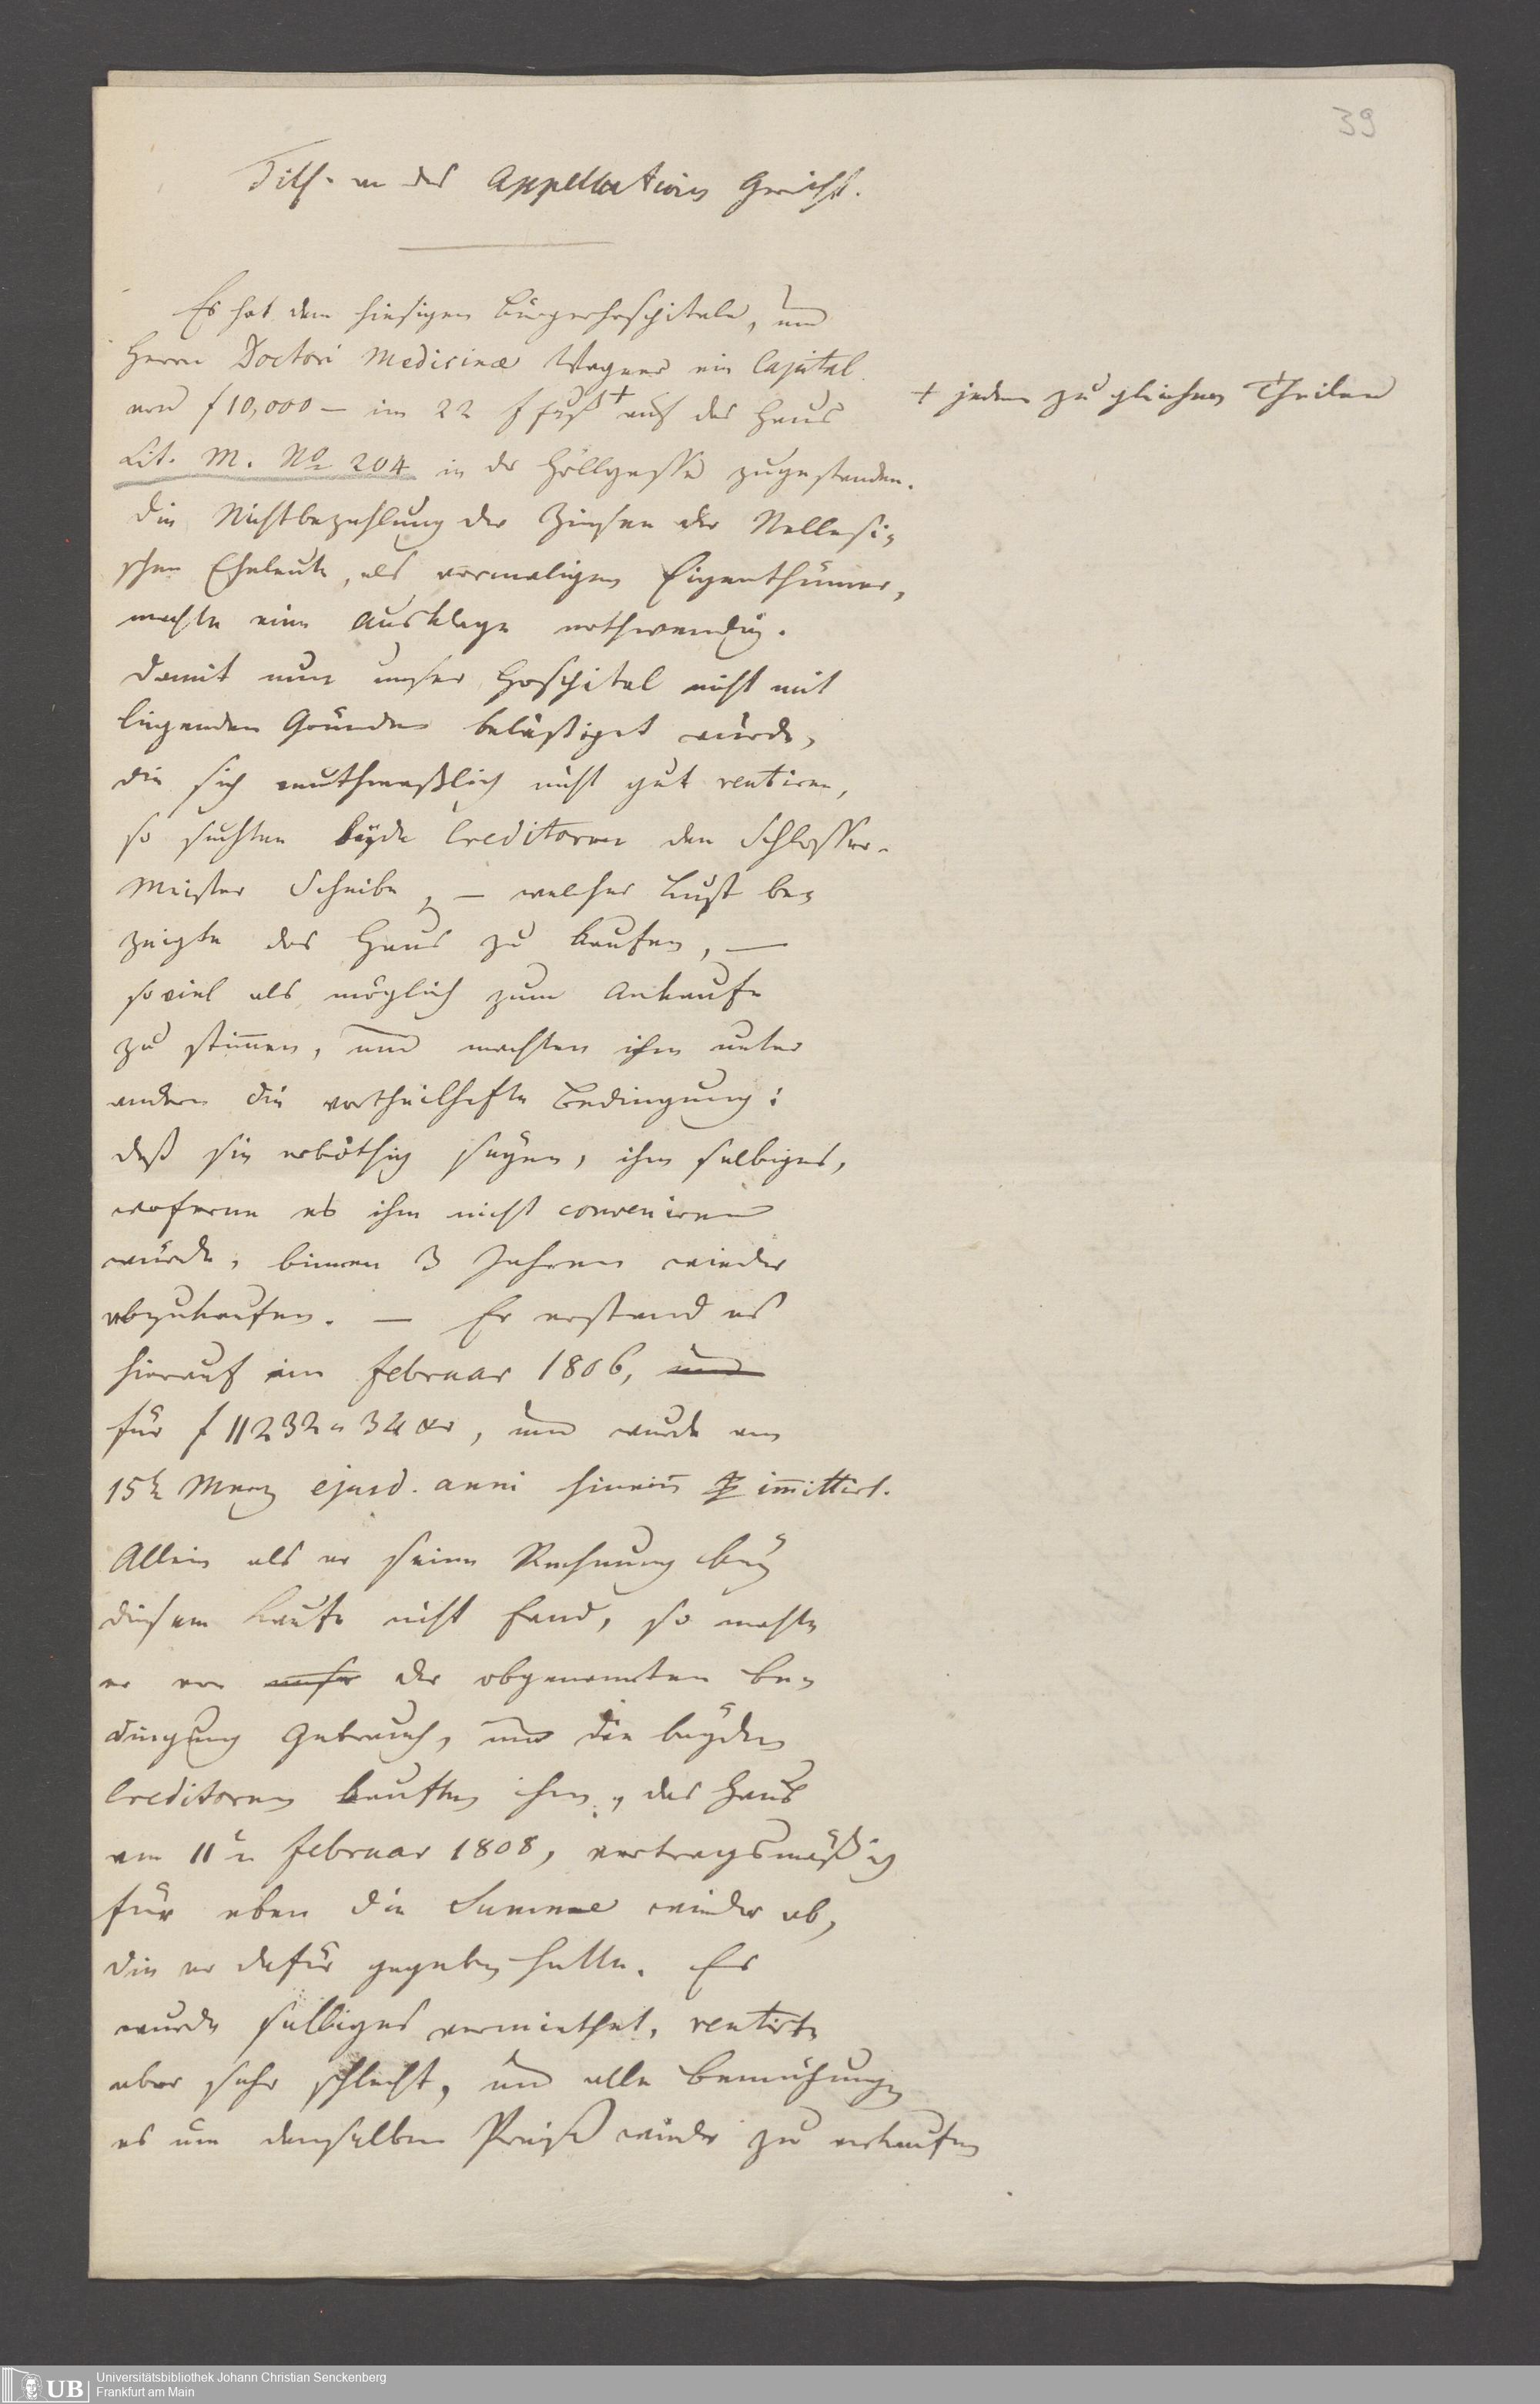 39
Titl. an das Appellations Gericht.
Es hat dem hiesigen Bürgerhospitale, und
Herrn Doctori Medicinae Wagner ein Capital
von f 10,000 – im 22 f fuß + auf das Haus
+ jedem zu gleichen Theilen
Lit. M. No 204 in der Höllgasse zugestanden.
Die Nichtbezahlung der Zinsen der Nellesi-
schen Eheleute, als vormaligen Eigenthümer,
machte eine Ausklage nothwendig.
Damit nun unser Hospital nicht mit
liegenden Gründen belästiget würde,
die sich muthmaßlich nicht gut rentiren,
so suchten beyde Creditoren den Schlosser-
Meister Scheibe, – welcher Lust be-
zeigte das Haus zu kaufen, –
soviel als möglich zum Ankaufe
zu stimen, und machten ihm unter
andern die vortheilhafte Bedingung:
daß sie erböthig seyen, ihm selbiges,
woferne es ihm nicht conveniren
würde, binnen 3 Jahren wieder
abzukaufen. – Er erstand es
hierauf im Februar 1806, und
für f 11232 " 34 xr, und wurde am
15n Merz ejusd. anni hinein immittirt.
Allein als er seine Rechnung bey
diesem Kaufe nicht fand, so machte
er von unser der obgenannten Be-
dingung Gebrauch, und die beyden
Creditoren kauften ihm, das Haus
am 11n Februar 1808, vertragsmäßig
für eben die Summe wieder ab,
die er dafür gegeben hatte. Es
wurde selbiges vermiethet, rentirte
aber sehr schlecht, und alle Bemühungen
es um denselben Preiß wieder zu verkaufen
Universitätsbibliothek Johann Christian Senckenberg
Frankfurt am Main
UB